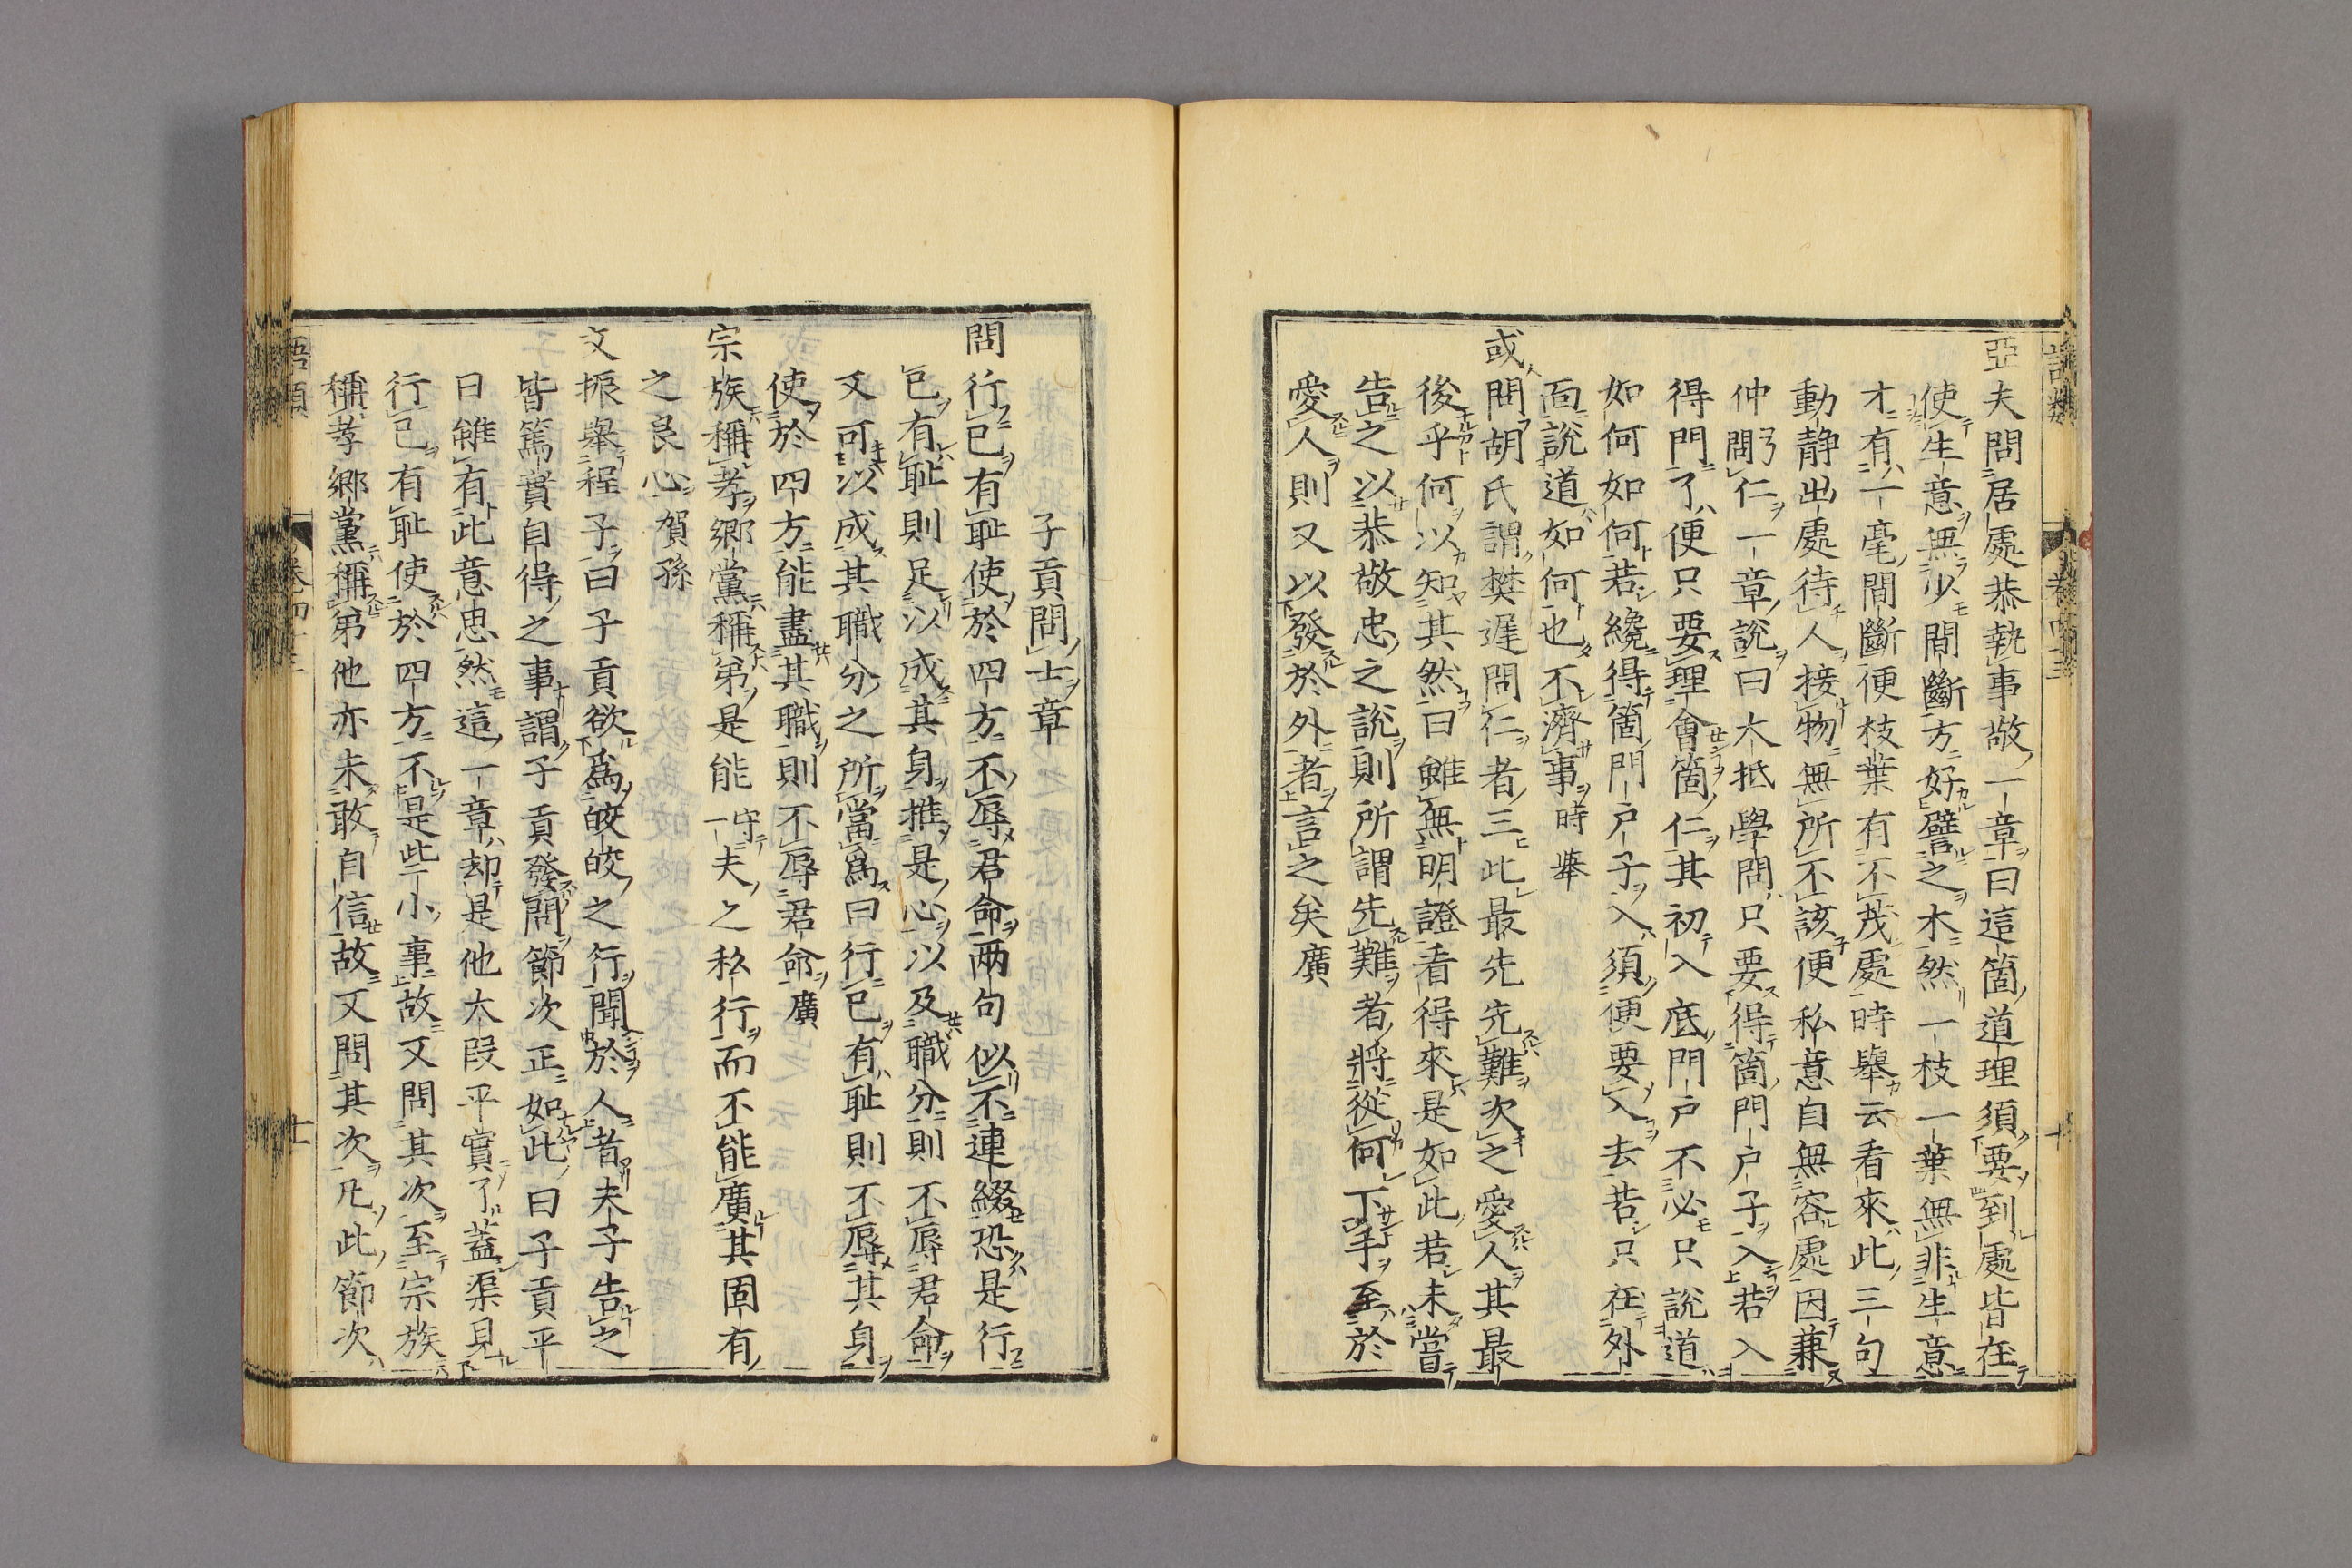 亞夫問居處恭執事敬一章曰這箇道理須要到處皆在
使生意無少間斷方好譬之木然一枝一葉無非生意
才有一毫間斷便枝葉有不茂處時舉云看來此三句
動靜出處待人接物無所不該便私意自無容處因兼
仲弓問仁一章說曰大抵學問只要得箇門戶子入若入
得門了便只要理會箇仁其初入底門戶不必只說道
如何如何若纔得箇門戶子入須便要入去若只在外
面說道如何也不濟事時舉
或問胡氏謂樊遲問仁者三此最先先難次之愛人其最
後乎何以知其然曰雖無明證看得來是如此若未嘗
告之以恭敬忠之說則所謂先難者將從何下手至於
愛人則又以發於外者言之矣廣
子貢問士章
問行己有恥使於四方不辱君命兩句似不連綴恐是行
己有恥則足以成其身推是心以及職分則不辱君命
又可以成其職分之所當為曰行己有恥則不辱其身
使於四方能盡其職則不辱君命廣
宗族稱孝鄉黨稱弟是能守一夫之私行而不能廣其固有
之良心賀孫
文振舉程子曰子貢欲為皎皎之行聞於人者夫子告之
皆篤實自得之事謂子貢發問節次正如此曰子貢平
日雖有此意思然這一章却是他大段平實了蓋渠見
行己有恥使於四方不是些小事故又問其次至宗族
稱孝鄉黨稱弟他亦未敢自信故又問其次凡此節次
語類
卷四十三
十一